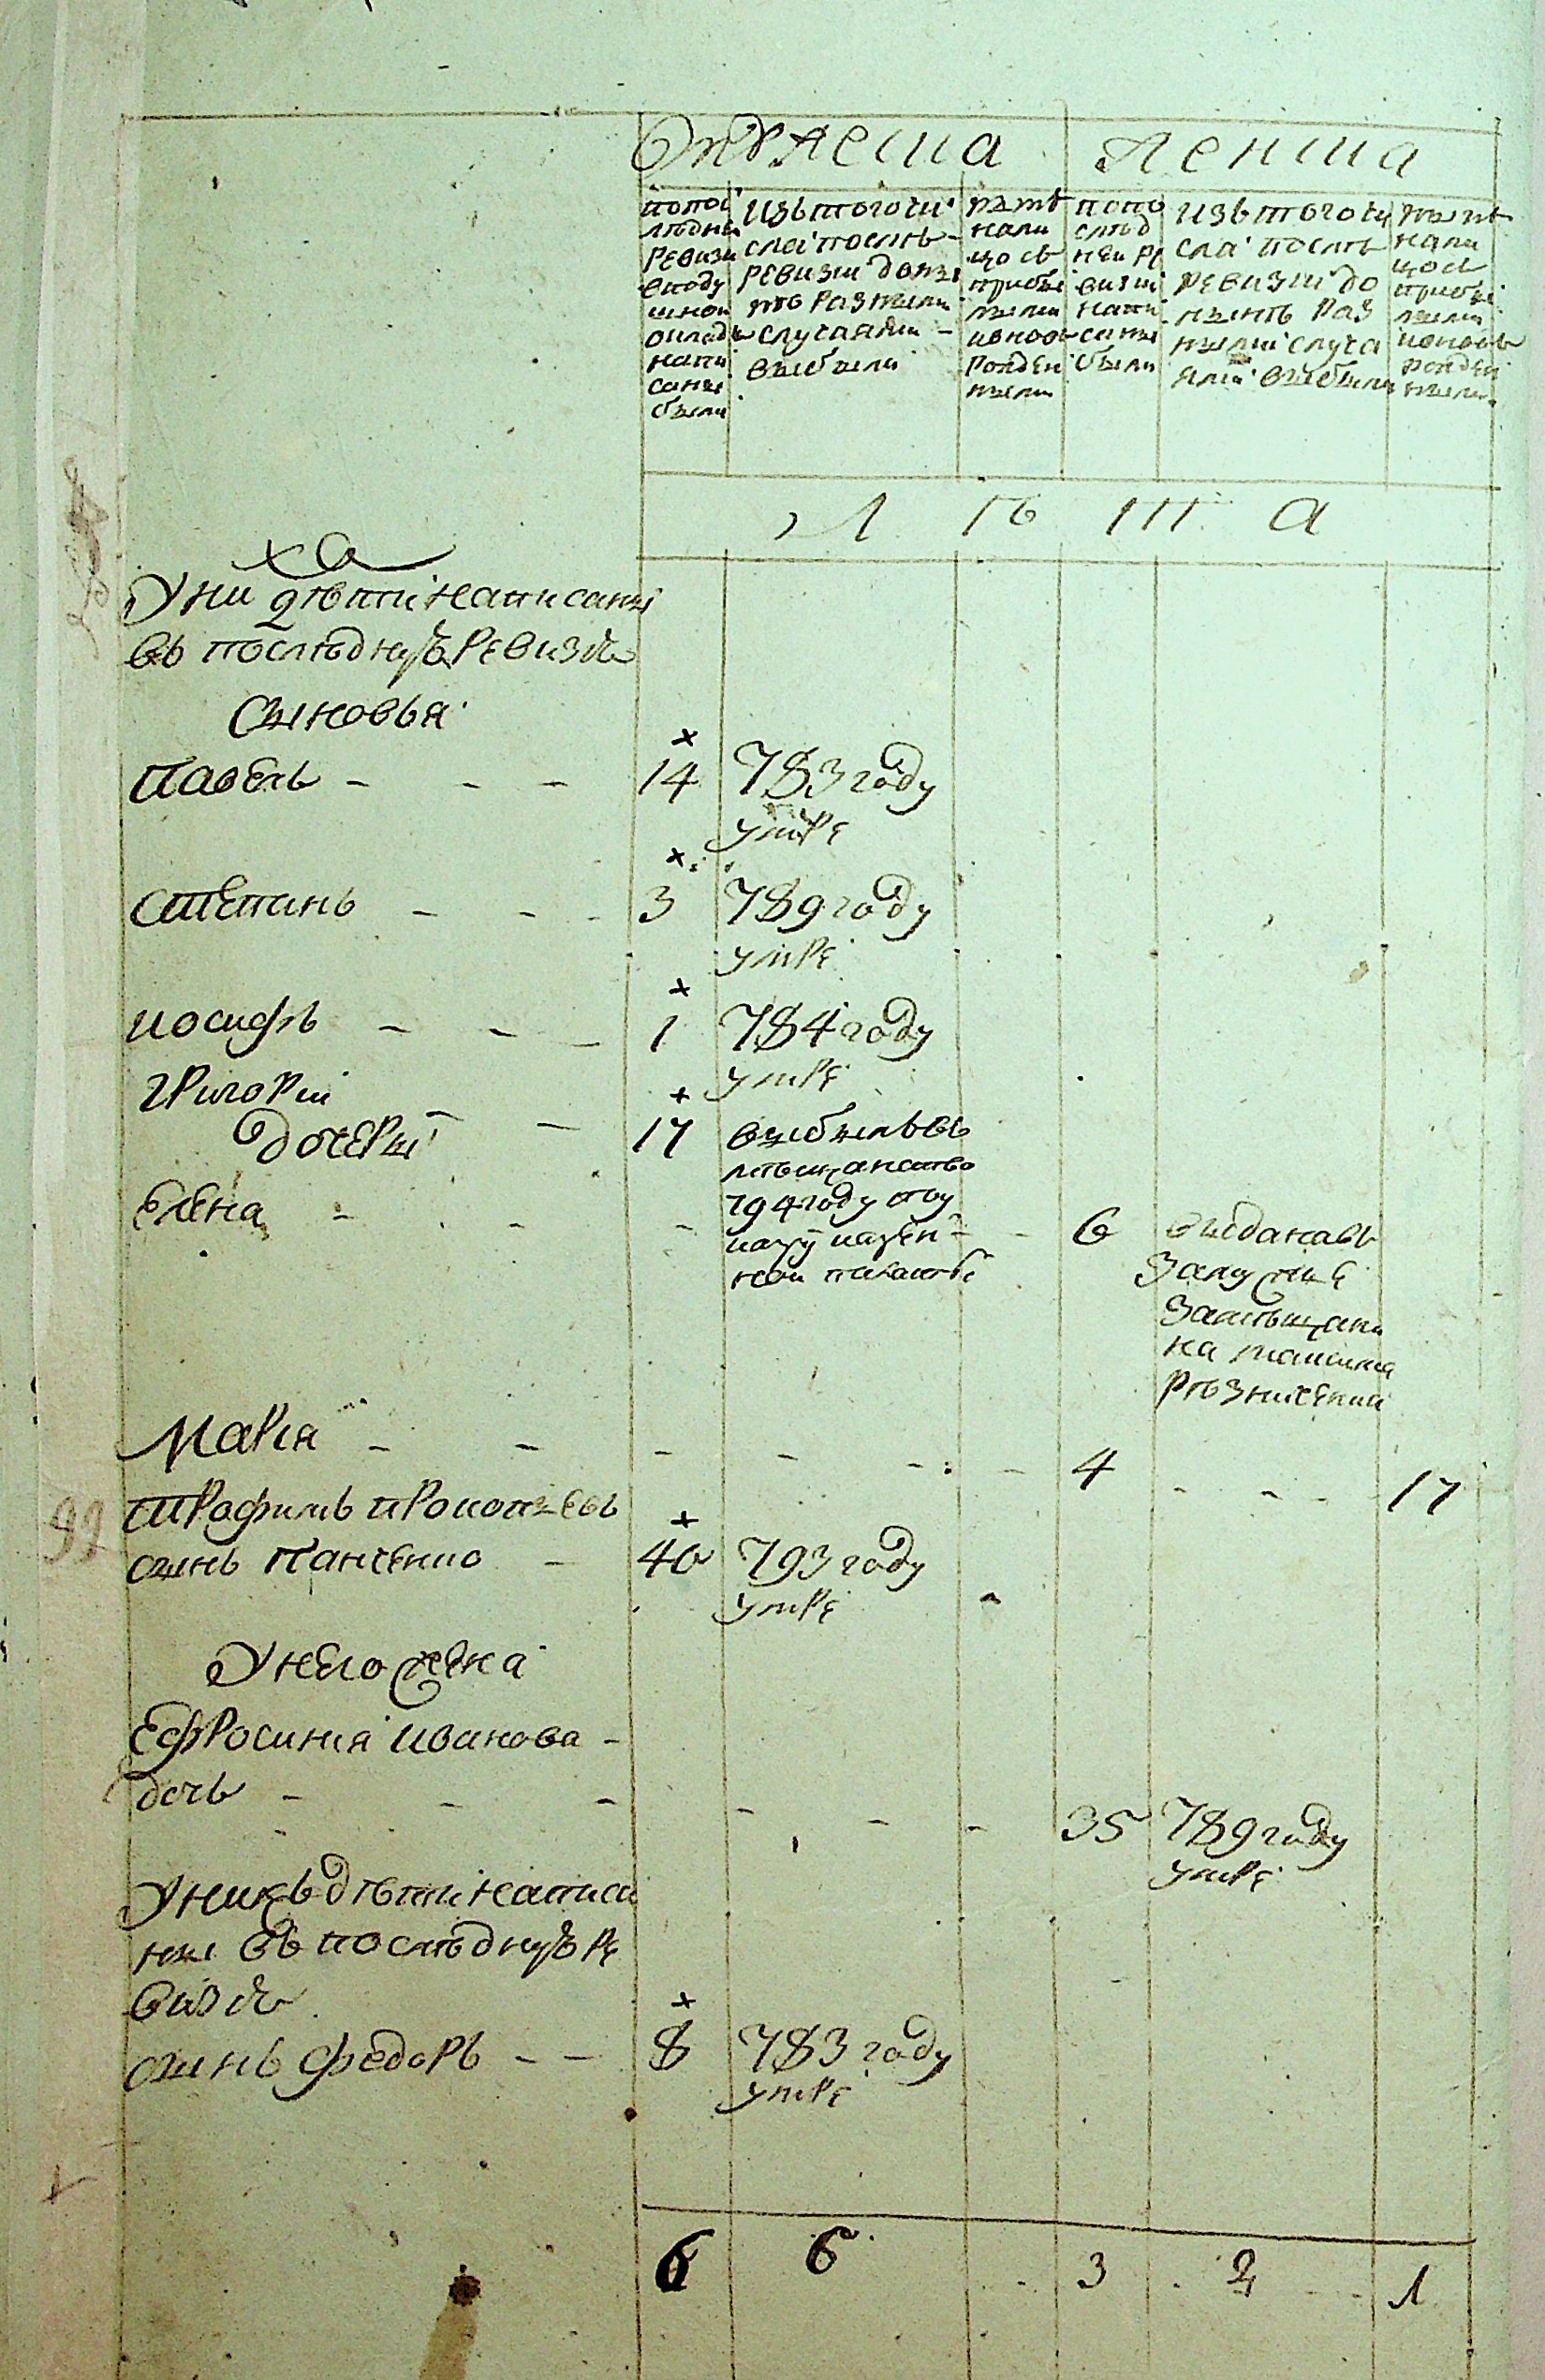 мужеска женска
по последней ревизии в подушной окладъ написаны были
изъ того числа после ревизии до нынѣ разными случаями выбыли
нынѣ на лицо съ прибылыми и вновь рожденными
по последней ревизии написаны были
изъ того числа послѣ ревизии до нынѣ разными случаями выбыли
нынѣ на лицо съ прибылыми и вновь рожденными
лѣта
ха
У ни дѣти написаны
въ последнуъ ревизiю
Сыновья
Павелъ - - - 14 783 году
умре
Степанъ - - - 3 789 году
умре
иосифъ - - - 1 784 году
умре
григории - - 17 выбылъ въ
мѣщанство
794 году по у
казу казен
ной палаты
дочери
Елена - - - - 6 выдана въ
замужые
за мѣщани
на
Мария - - - - - - 4 - - - 17
трофимъ прокопьевъ
сынъ Панченко - 40 793 году
умре
У него жена
Ефросиния иванова -
дочь - - - - - - 35 789 году
умре
У нихъ дѣти написа
ны въ последнуъ ре
визiю
сынъ федоръ - - 8 783 году
умре
6 6 3 2 1
92